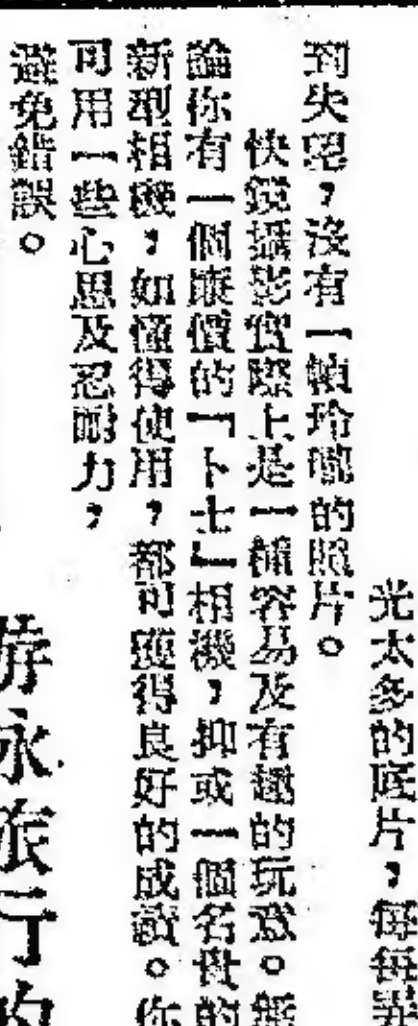 光太多的底片，每每弄
到失望，沒有一幀玲瓏的照片。
快鏡攝影實際上是一種容易及有趣的玩意。無
論你有一個廉價的「卜士」相機，抑或一個名貴的
新型相機，如懂得使用，都可獲得良好的成績。你
可用一些心思及忍耐力，
避免錯誤。
游泳旅行的